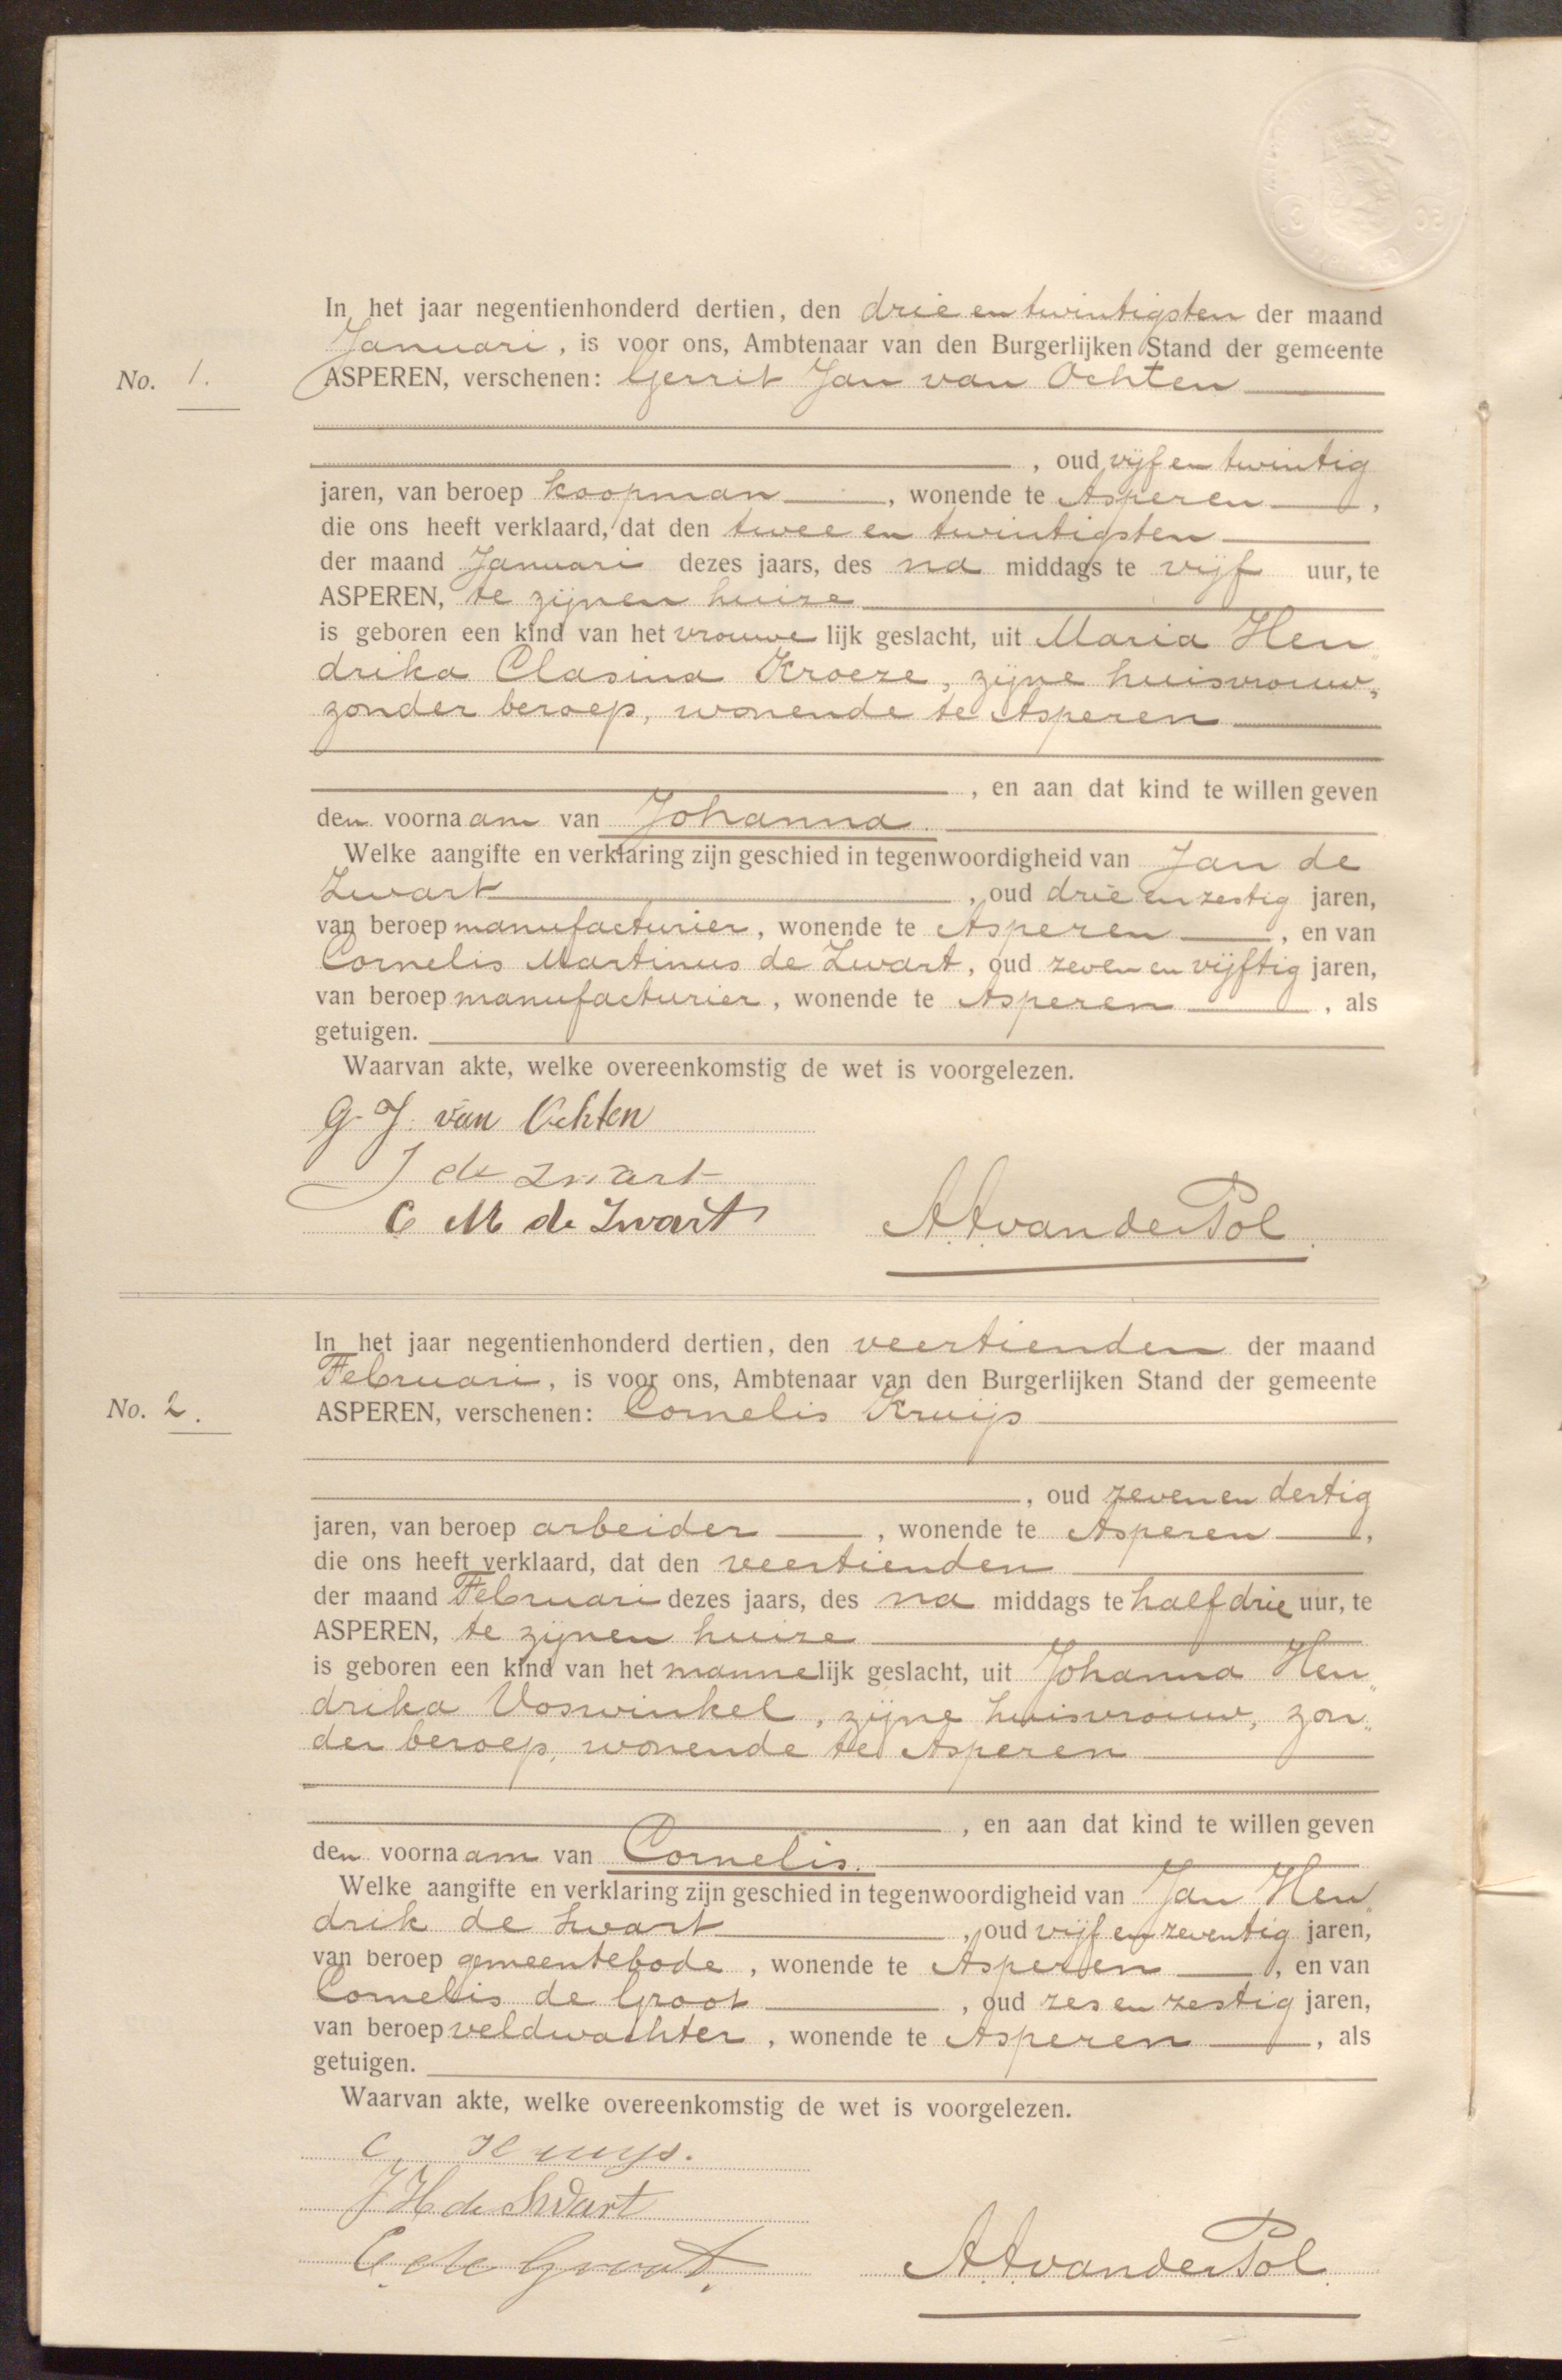 In het jaar negentienhonderd dertien, den drie en twintigsten der maand
Januari, is voor ons, Ambtenaar van den Burgerlijken Stand der gemeente
No. 1. ASPEREN, verschenen: Gerrit Jan van Ochten
, oud vijf en twintig
jaren, van beroep koopman, wonende te Asperen,
die ons heeft verklaard, dat den twee en twintigsten
der maand Januari dezes jaars, des na middags te vijf uur, te
ASPEREN, te zijnen huize
is geboren een kind van het vrouwelijk geslacht, uit Maria Hen„
drika Clasina Kroeze, zijne huisvrouw,
zonder beroep, wonende te Asperen
, en aan dat kind te willen geven
den voornaam van Johanna.
Welke aangifte en verklaring zijn geschied in tegenwoordigheid van Jan de
Zwart, oud drie en zestig jaren,
van beroep manufacturier, wonende te Asperen, en van
Cornelis Martinus de Zwart, oud zeven en vijftig jaren,
van beroep manufacturier, wonende te Asperen, als
getuigen.
Waarvan akte, welke overeenkomstig de wet is voorgelezen.
G. J. van Ochten
J de Zwart
C M de Zwart A.A. van der Pol
In het jaar negentienhonderd dertien, den veertienden der maand
Februari, is voor ons, Ambtenaar van den Burgerlijken Stand der gemeente
No. 2. ASPEREN, verschenen: Cornelis Kruijs
, oud zeven en dertig
jaren, van beroep arbeider, wonende te Asperen,
die ons heeft verklaard, dat den veertienden
der maand Februari dezes jaars, des na middags te half drie uur, te
ASPEREN, te zijnen huize
is geboren een kind van het mannelijk geslacht, uit Johanna Hen„
drika Voswinkel, zijne huisvrouw, zon„
der beroep, wonende te Asperen
, en aan dat kind te willen geven
den voornaam van Cornelis.
Welke aangifte en verklaring zijn geschied in tegenwoordigheid van Jan Hen„
drik de Zwart, oud vijf en zeventig jaren,
van beroep gemeentebode, wonende te Asperen, en van
Cornelis de Groot, oud zes en zestig jaren,
van beroep veldwachter, wonende te Asperen, als
getuigen.
Waarvan akte, welke overeenkomstig de wet is voorgelezen.
C, Kruys.
J H de Swart
C. de Groot. A.A. van der Pol